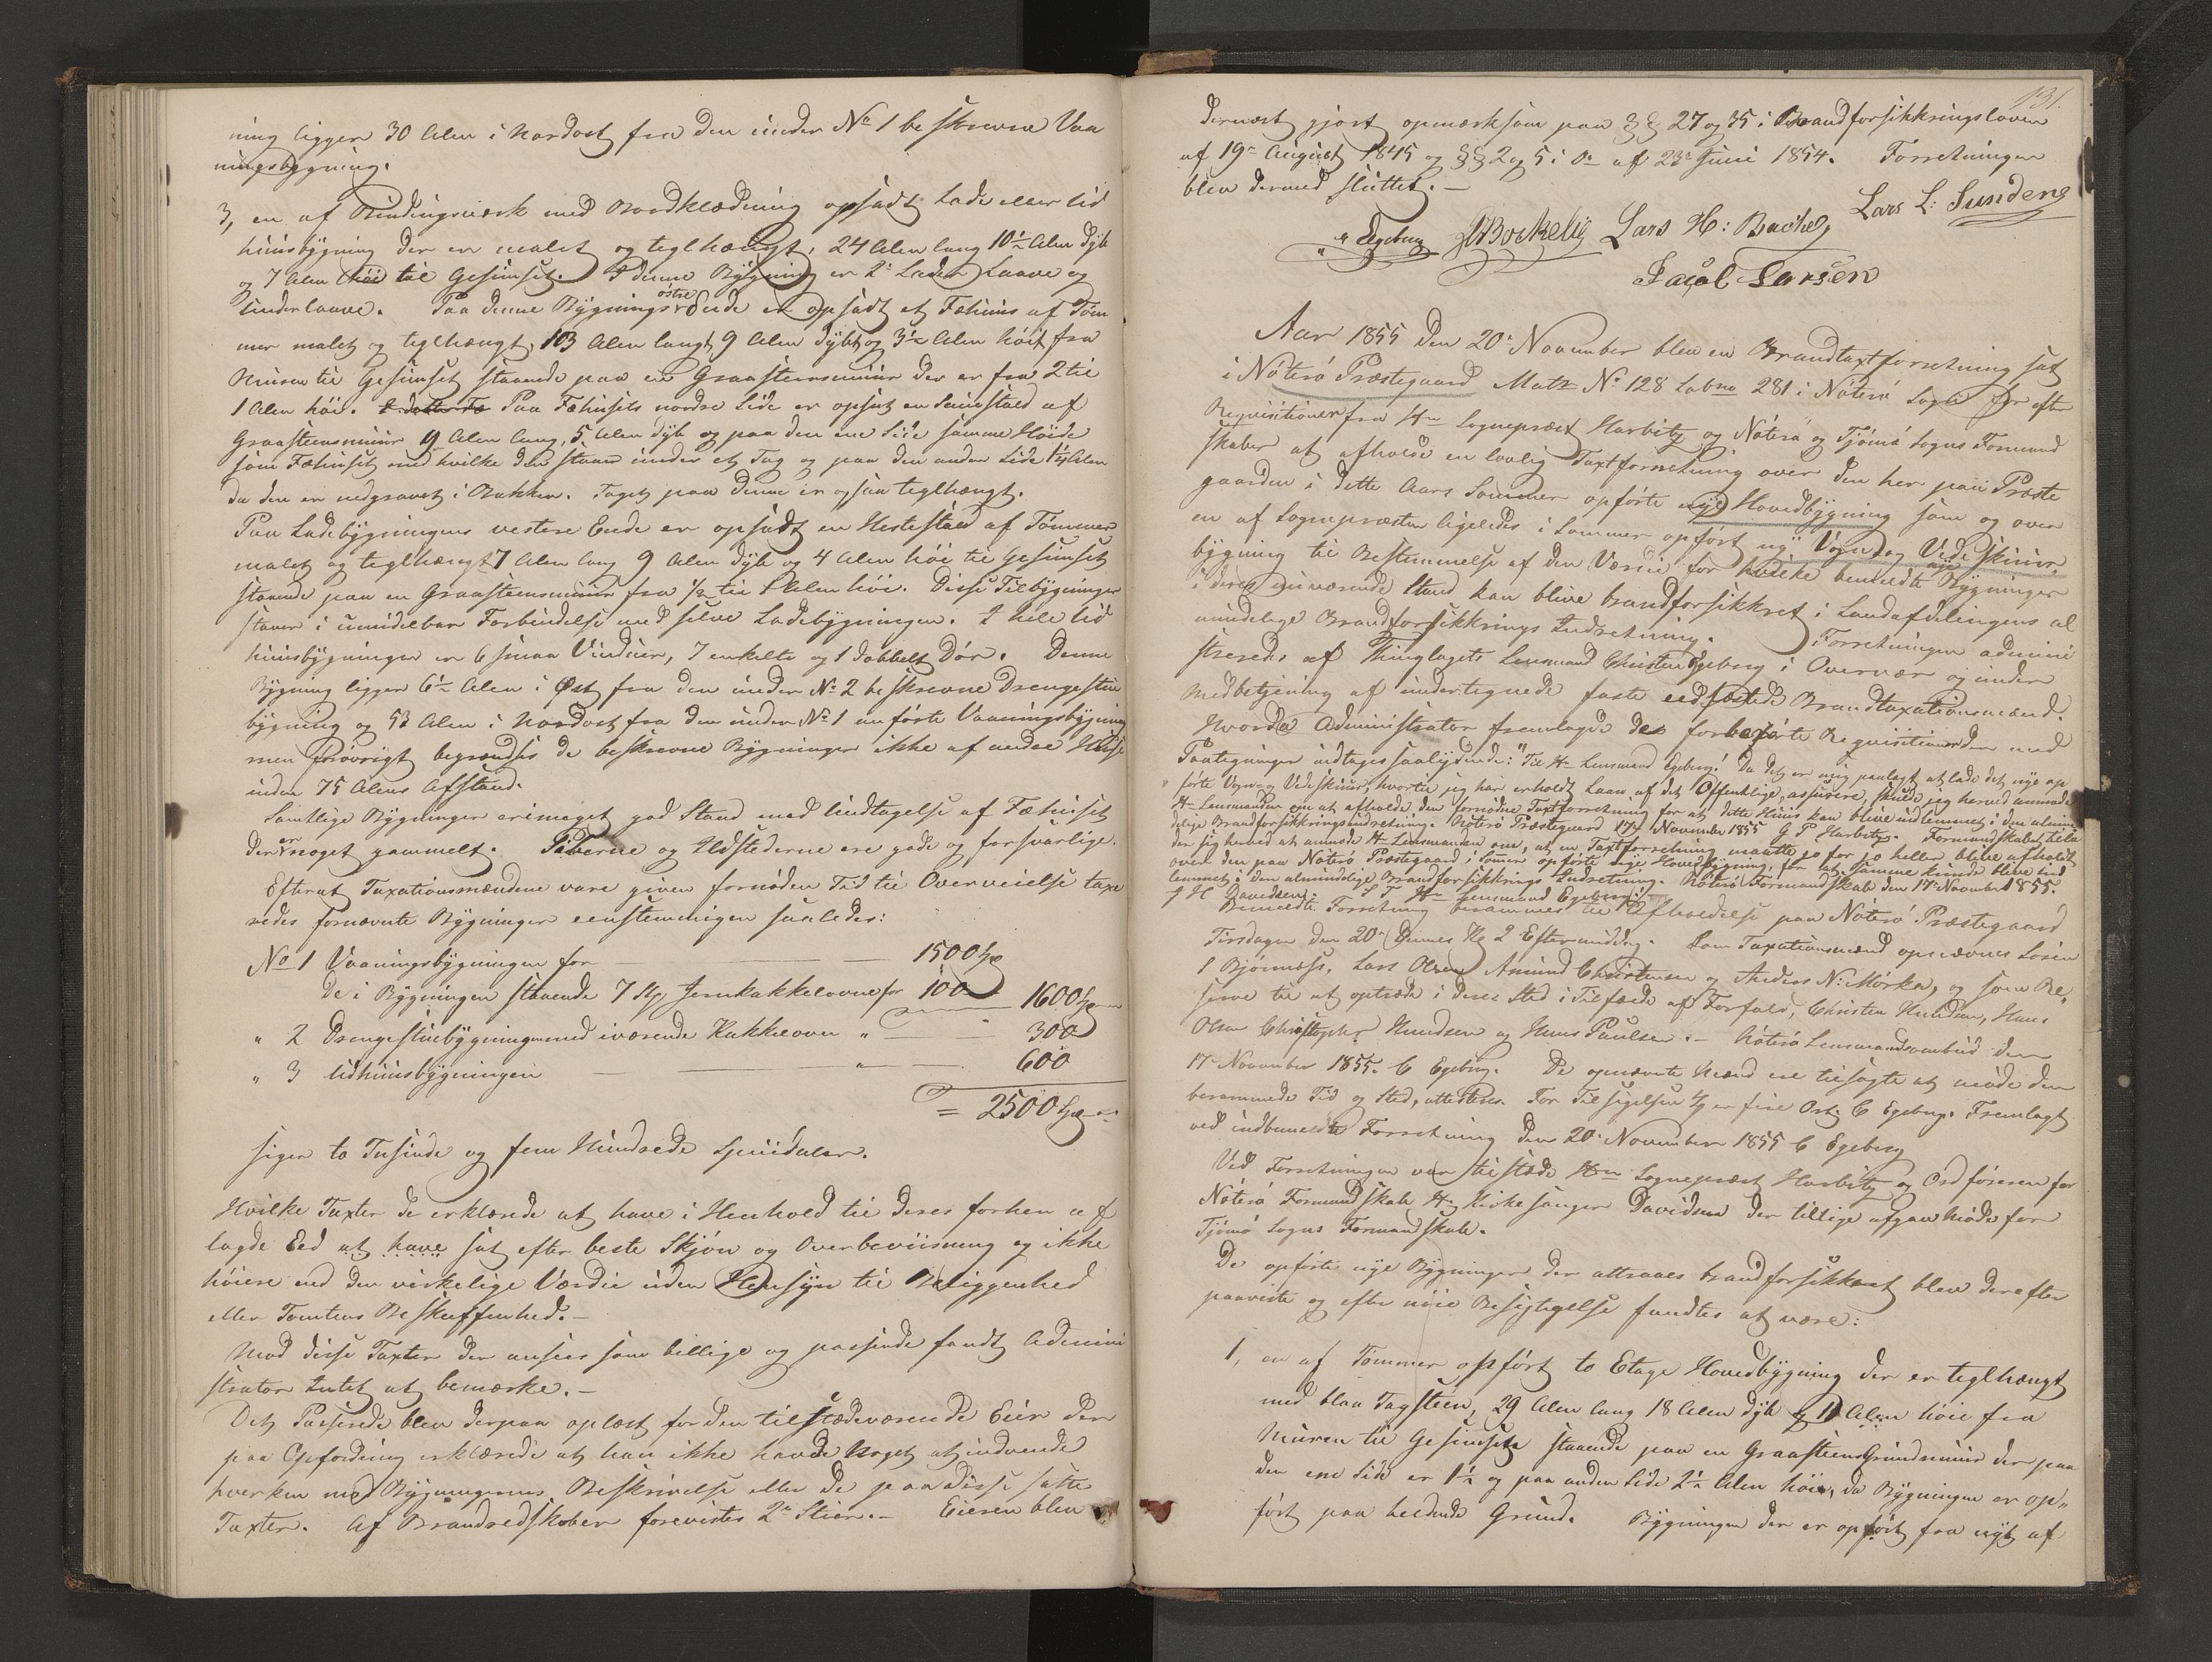 ning ligger 30 Alen i Nordost fra den under No 1 beskrevne Vaa
ningsbygning.
3, en af Bindingsværk med Bordklædning opsadt Lade eller Ud
huusbygning der er malet og teglhængt, 24 Alen lang 10½ Alen dyb
og 7 Alen høi til Gesimset. I denne Bygning er 2de Lader Laave og
Underlaave. Paa denne Bygnings østre Ende er opsadt et Fæhuus af Tøm
mer malet og teglhængt, 13 Alen langt, 9 Alen dybt og 3½ Alen høit fra
Muren til Gesimset staaende paa en Graasteensmuur der er fra 2 til
1 Alen høi. Paa Fæhusets nordre Side er opsat en Sauestald af
Graasteensmuur 9 Alen lang, 5 Alen dyb og paa den ene Side samme Høide
som Fæhuset med hvilke den staaer under et Tag og paa den anden Side 1¼ Alen
da den er nedgravet i Bakken. Taget paa denne er ogsaa teglhængt.
Paa Ladebygningens vestre Ende er opsadt en Hestestald af Tømmer
malet og teglhængt 7 Alen lang 9 Alen dyb og 4 Alen høi til Gesimset
staaende paa en Graasteensmuur fra ½ til 1 Alen høi. Disse Tilbygninger
staaer i umidelbar Forbindelse med selve Ladebygningen. I hele Ud
huusbygningen er 6 smaa Vinduer, 7 enkelte og 1 dobbelt Dør. Denne
Bygning ligger 6½ Alen i Øst fra den under No 2 beskrevne Drengestue
bygning og 53 Alen i Nordost fra den under No 1 anførte Vaaningsbygning
men forøvrigt begrændses de beskrevne Bygninger ikke af andre Huse
inden 75 Alens Afstand.
Samtlige Bygninger er i meget god Stand med Undtagelse af Fæhuset
der er noget gammelt. Piberne og Ildstederne ere gode og forsvarlige.
Efterat Taxationsmændene vare given fornøden Tid til Overveielse taxe
redes fornævnte Bygninger eenstemmigen saaledes:
No 1 Vaaningsbygningen for 1500 Spd
De i Bygningen staaende 7 Stk Jernkakkelovne for 100 — 1600 Spd
" 2 Drengestuebygningen med iværende Kakkelovn " — 300
" 3 Udhuusbygningen " — 600
= 2500 Spd
siger to Tusinde og fem Hundrede Speciedaler.
Hvilke Taxter de erklærede at have i Henhold til deres forhen af
lagde Eed at have sat efter beste Skjøn og Overbeviisning og ikke
høiere end den virkelige Værdie uden Hensyn til Beliggenhed
eller Tomtens Beskaffenhed.—
Mod disse Taxter der ansees som billige og passende fandt Admini
strator Intet at bemærke.—
Det Passerede blev derpaa oplæst for den tilstædeværende Eier der
paa Opfordring erklærede at han ikke havde Noget at indvende
hverken mod Bygningernes Beskrivelse eller de paa disse satte
Taxter. Af Brandredskaber forevistes 2de Stier.— Eieren blev
131.
dernæst gjort opmærksom paa §§ 27 og 35 i Brandforsikkringsloven
af 19de August 1845 og §§ 2 og 5 i do af 23de Juni 1854. Forretningen
blev dermed sluttet.—
Lars L: Sundeng
Egeberg Bockelig Lars H: Bache,
Jacob Larsen
Aar 1855 den 20de November blev en Brandtaxtforretning sat
i Nøterø Præstegaard Matr No 128 Løbno 281 i Nøterø Sogn for efter
Requisitioner fra Hr Sognepræst Harbitz og Nøterø og Tjømø Sogns Formand
skaber at afholde en lovlig Taxtforretning over den her paa Præste
gaarden i dette Aars Sommer opførte nye Hovedbygning som og over
en af Sognepræsten ligeledes i Sommer opført ny Vogn og Vedeskuur
bygning til Bestemmelse af den Værdie for hvilke bemeldte nye Bygninger
i deres nuværende Stand kan blive brandforsikkret i Landafdelingens al
mindelige Brandforsikkrings Indretning. Forretningen admini
streredes af Thinglagets Lensmand Christen Egeberg i Overvær og under
Medbetjening af undertegnede faste eedfæstede Brandtaxationsmænd.
Hvorda Administrator fremlagde de forberørte Requisitioner der med
Paategninger indtages saalydende: "Til Hr Lensmand Egeberg! Da det er mig paalagt at lade det nye op
førte Vogn og Vedeskuur, hvortil jeg har erholdt Laan af det Offentlige, assurere, skulde jeg herved anmode
Hr Lensmanden om at afholde den fornødne Taxtforretning for at dette Huus kan blive indlemmet i den almin
delige Brandforsikkringsindretning. Nøterø Præstegaard 17de November 1855 G P Harbitz. Formandskabet tilla
der sig herved at anmode Hr Lensmanden om, at en Taxtforretning maatte jo før jo heller blive afholdt
over den paa Nøterø Præstegaard i Sommer opførte nye Hovedbygning, for at samme kunde blive ind
lemmet i den almindelige Brandforsikkrings Indretning. Nøterø Formandskab den 17de November 1855.
J H Davidsen. S T Hr Lensmand Egeberg!
Bemeldte Forretning berammes til Afholdelse paa Nøterø Præstegaard
Tirsdagen den 20de dennes Kl 2 Eftermiddag. Som Taxationsmænd opnævnes Søren
I Bjørnæs, Lars Olsen Amund Christensen og Anders N: Mørka, og som Re,
serve til at optræde i deres Sted i Tilfælde af Forfald, Christen Knudsen, Hans
Olsen Christopher Knudsen og Hans Paulsen.— Nøterø Lensmandsombud den
17de November 1855. C Egeberg. De opnævnte Mænd ere tilsagte at møde den
berammede Tid og Sted, attesteres. For Tilsigelsen er fire Ort. C Egeberg. Fremlagt
ved indbemeldte Forretning den 20de November 1855 C Egeberg
Ved Forretningen var tilstæde Hr Sognepræst Harbitz og Ordføreren for
Nøterø Formandskab Hr Kirkesanger Davidsen der tillige afgav Møde for
Tjømø Sogns Formandskab.
De opførte nye Bygninger der attraaes brandforsikkret blev derefter
paaviste og efter nøie Besigtigelse fandtes at være:
1, en af Tømmer opført to Etage Hovedbygning der er teglhængt
med blaa Tagsteen, 29 Alen lang 18 Alen dyb og 11 Alen høie fra
Muren til Gesimset staaende paa en Graasteens Grundmuur der paa
den ene Side er 1½ og paa anden Side 2½ Alen høie, da Bygningen er op„
ført paa heldende Grund. Bygningen der er opført fra nyt af